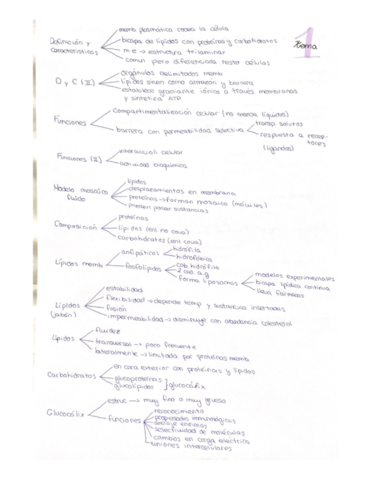 Tema 1
Definición y características
memb plasmática rodea la célula
bicapa de lípidos con proteínas y carbohidratos
m e → estructura trilaminar
común pero diferenciada resto células
D y C (II)
orgánulos delimitados memb
lípidos sirven como almacén y barrera
establece gradiente iónico a través membranas
y sintetiza ATP
Funciones
Compartimentalización celular (no mezcla líquidos)
barrera con permeabilidad selectiva
transp. solutos
respuesta a receptores
(ligandos)
Funciones (II)
interacción celular
actividad bioquímica
Modelo mosaico fluido
lípidos
desplazamientos en membrana
proteínas → forman mosaico (móviles)
pueden pasar sustancias
Composición
proteínas
lípidos
carbohidratos
Lípidos memb
anfipáticos
hidrófila
hidrofóbica
fosfolípidos
cab. hidrófila
2 col. a.g
forma liposomas
modelos experimentales
bicapa lipídica continua
llevar fármacos
Lípidos
estabilidad
flexibilidad → depende temp y sustancias insertadas
fusión
impermeabilidad → disminuye con abundancia colesterol
Lípidos
fluidez
transversal → poco frecuente
lateralmente → limitada por proteínas memb
Carbohidratos
en cara exterior con proteínas y lípidos
glucoproteínas
glucolípidos
glucocálix
Glucocálix
estruc → muy fino a muy grueso
funciones
reconocimiento
propiedades inmunológicas
anclaje enzimas
selectividad de moléculas
cambios en carga eléctrica
uniones intercelulares